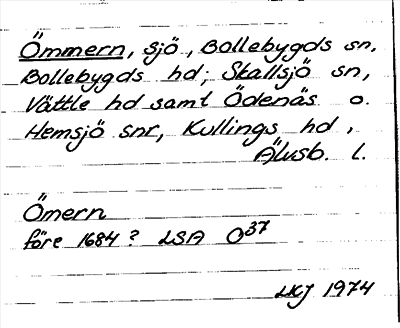 Ömmern, sjö, Bollebygds sn,
Bollebygds hd; Skallsjö sn,
Vättle hd samt Ödenäs o.
Hemsjö snr, Kullings hd,
Älvsb. l.
Ömern
före 1684? LSA O37
LKJ 1974